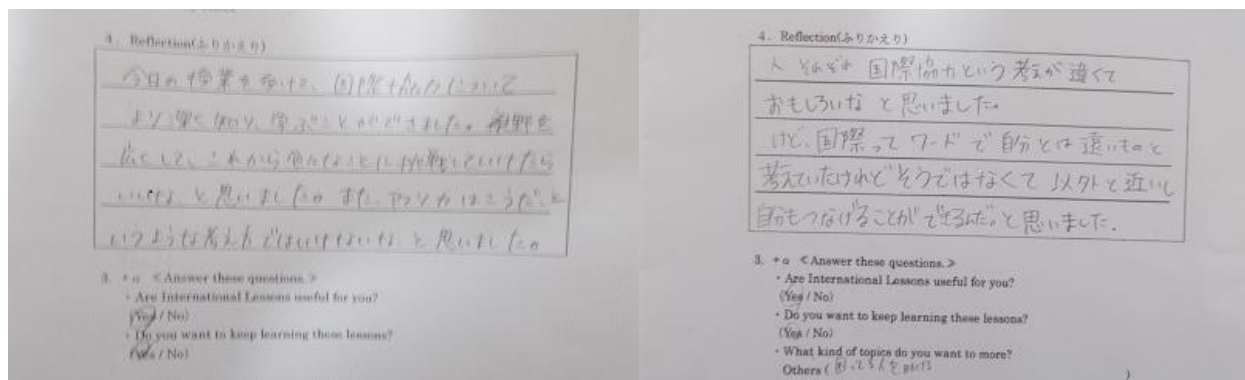 4. Reflection(ふりかえり)
今日の授業を受けて、国際協力について
より深く知り、学ぶことができました。視野を
広くして、これから色んなことに挑戦していけたら
いいな と思いました。また、アフリカはこうだ と
いうような考え方ではいけないな と思いました。
3. +α <Answer these questions.>
・Are International Lessons useful for you?
(Yes / No)
・Do you want to keep learning these lessons?
(Yes / No)
4. Reflection(ふりかえり)
人 それぞれ 国際協力という考えが違くて
おもしろいな と思いました。
けど、国際って ワードで 自分とは遠いものと
考えていたけれど そうではなくて 以外と近いし
自分もつなげることができるんだ。と思いました。
3. +α <Answer these questions.>
・Are International Lessons useful for you?
(Yes / No)
・Do you want to keep learning these lessons?
(Yes / No)
・What kind of topics do you want to more?
Others ( 困ってる人を助ける )